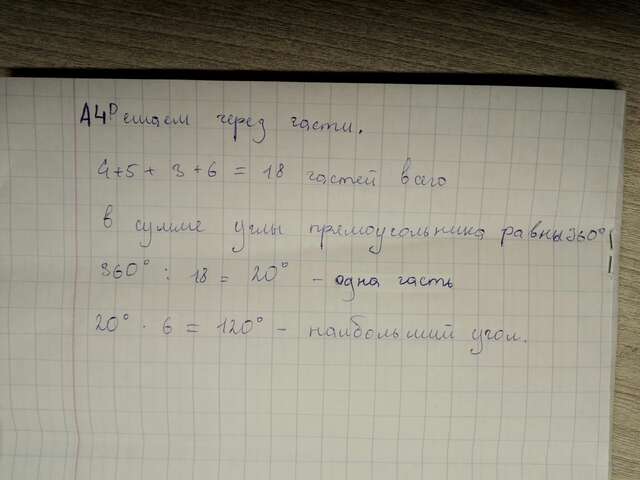 А4 Решаем через части.
4+5+3+6 = 18 частей всего
в сумме углы прямоугольника равны 360°
360° : 18 = 20° - одна часть
20° · 6 = 120° - наибольший угол.